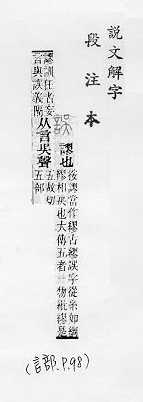 說文解字
段注本
誤
謬也
按謬當作繆古繆誤字從糸如綢
繆相戾也大傳五者一物紕繆是
謬訓狂者妄
言與誤義隔
从言吳聲
五故切
五部
(言部.P.98)